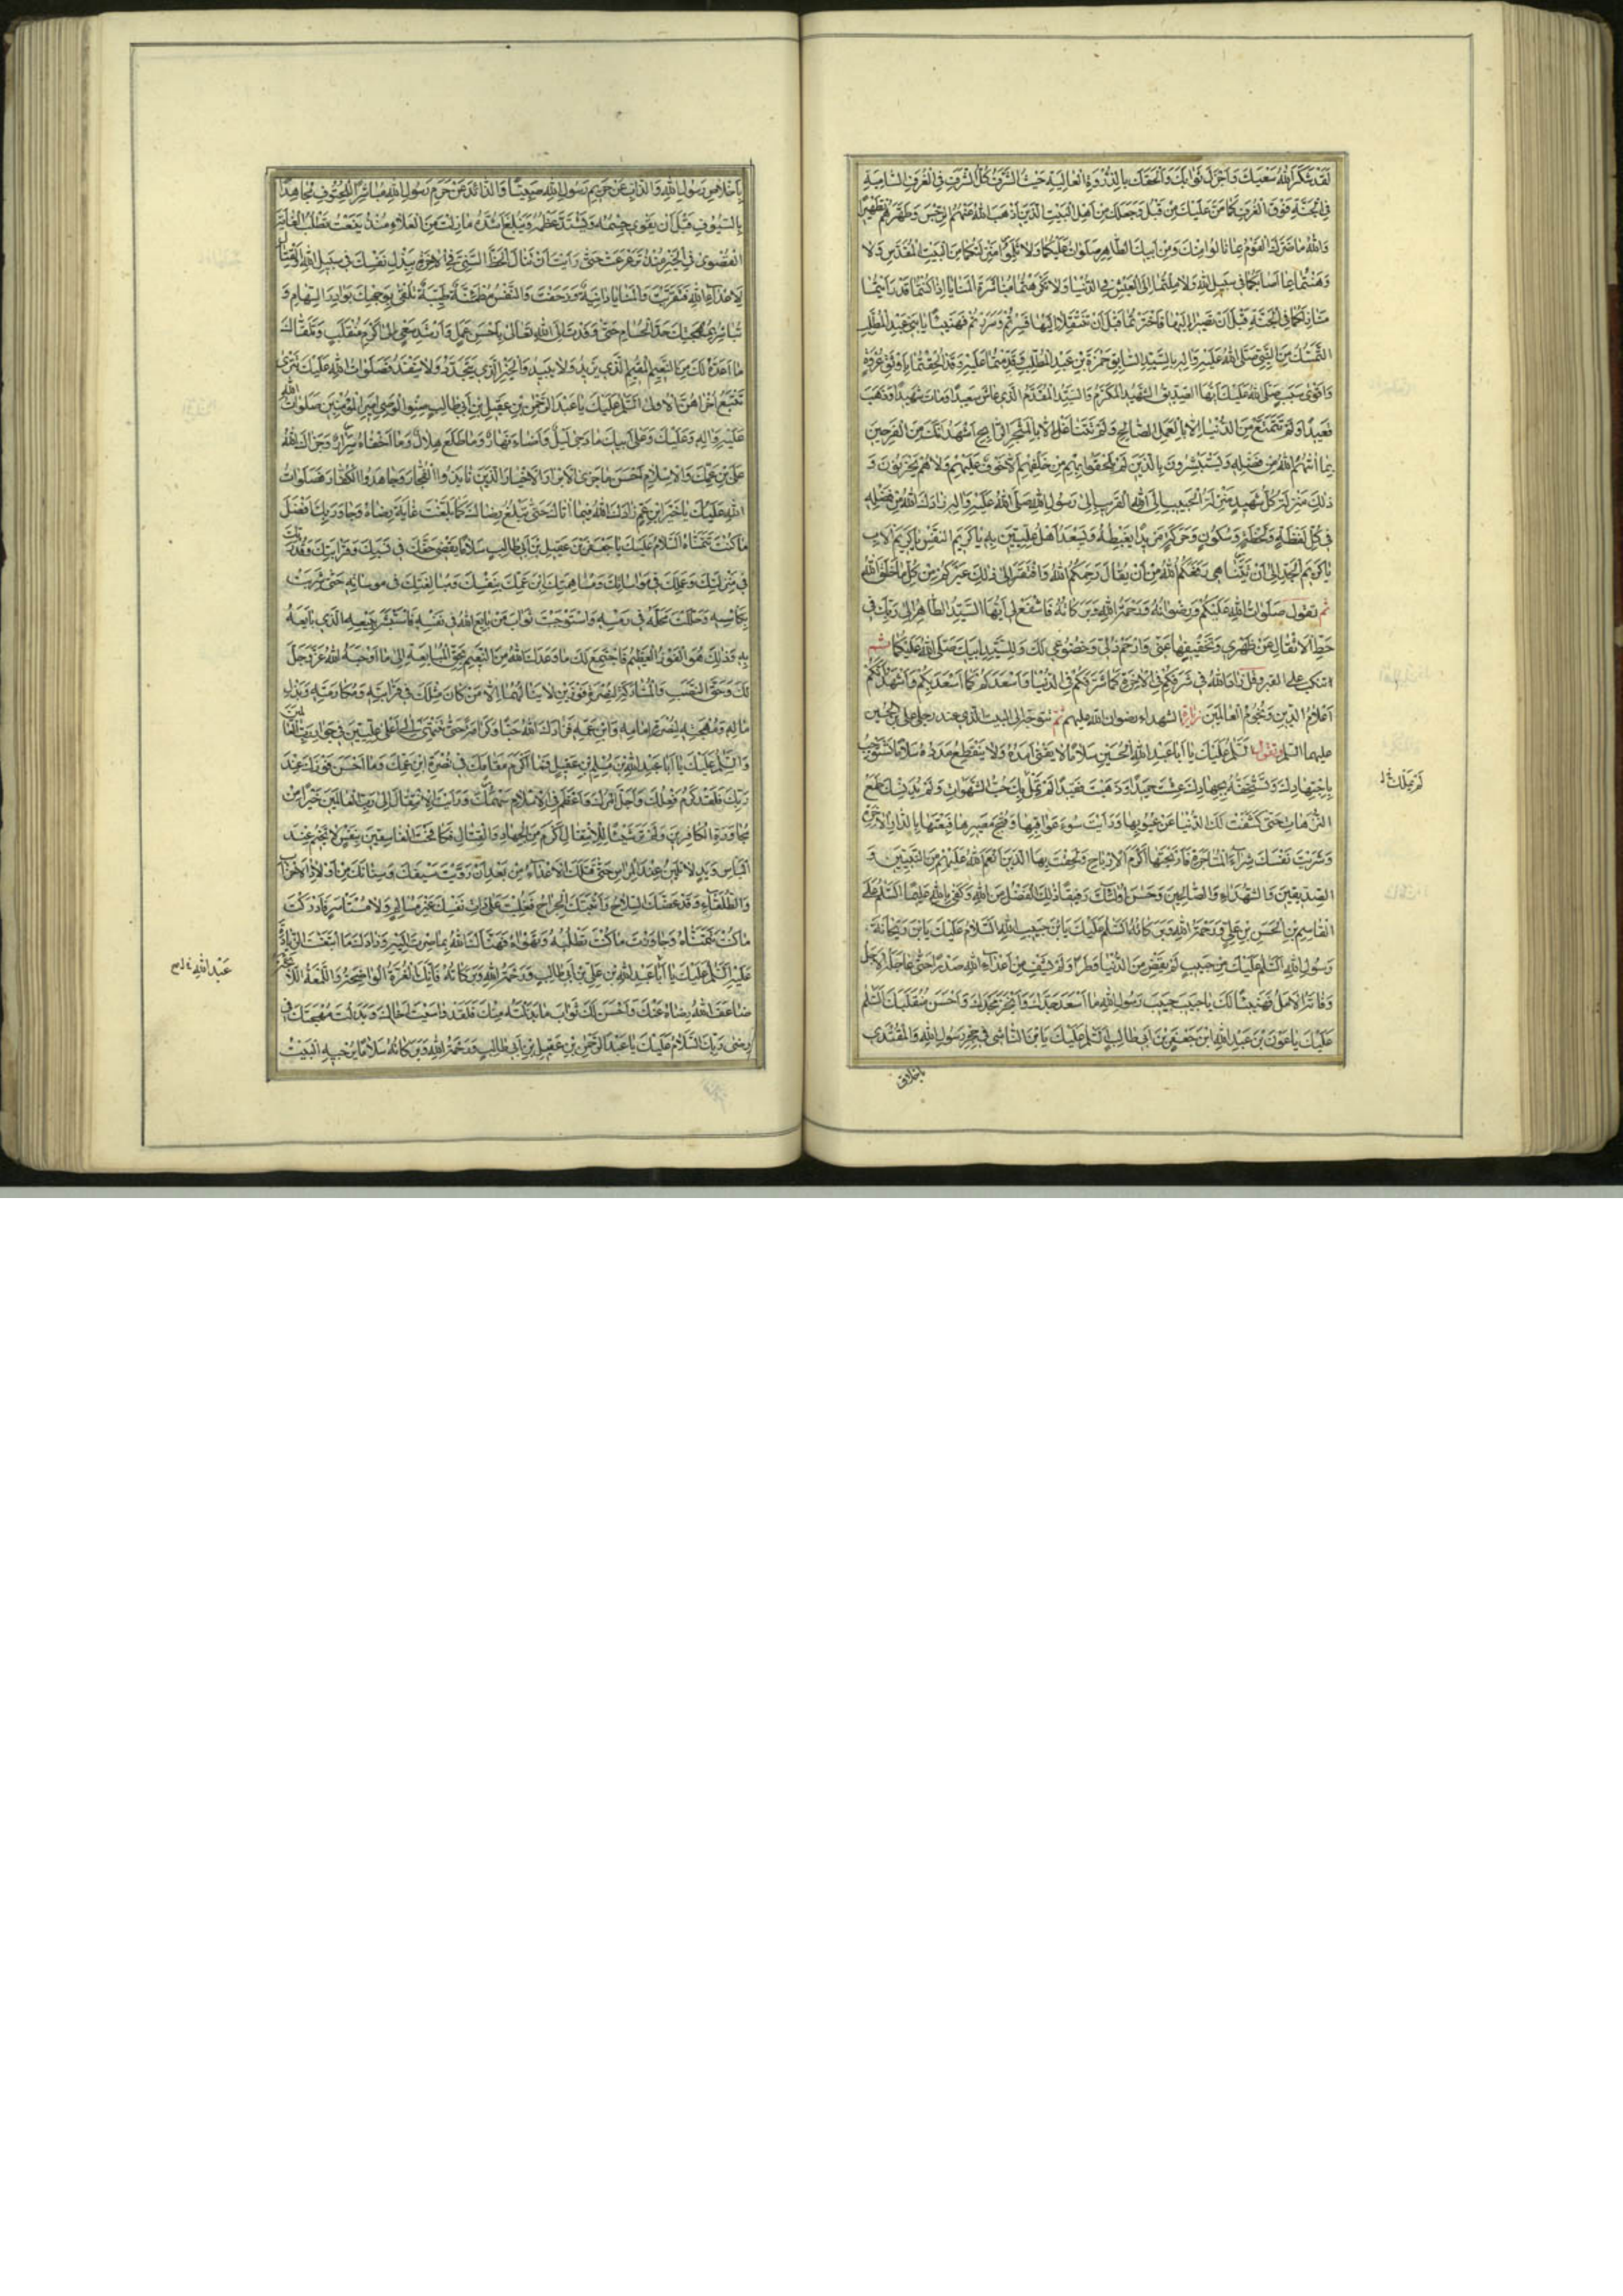 لَقَدْ شَكَرَ اللهُ سَعْيَكَ وَاَجْزَلَ ثَوَابَكَ وَاَلْحَقَكَ بِالذُّرْوَةِ الْعَالِيَةِ حَيْثُ الشَّرَفُ كُلُّ الشَّرَفِ فِي الْغُرَفِ السَّامِيَةِ
فِي الْجَنَّةِ فَوْقَ الْغُرَفِ كَمَا مَنَّ عَلَيْكَ مِنْ قَبْلُ وَجَعَلَكَ مِنْ اَهْلِ الْبَيْتِ الَّذِينَ اَذْهَبَ اللهُ عَنْهُمُ الرِّجْسَ وَطَهَّرَهُمْ تَطْهِيرًا
وَاللهُ مَا ضَرَّكَ الْقَوْمُ بِمَا نَالُوا مِنْكَ وَمِنْ اَبِيكَ الطَّاهِرِ صَلَوَاتُ عَلَيْكُمَا وَلَا ثَلَمُوا مَنْزِلَتَكُمَا مِنَ الْبَيْتِ الْمُقَدَّسِ وَلَا
وَهَنْتُمَا بِمَا اَصَابَكُمَا فِي سَبِيلِ اللهِ وَلَا مِلْتُمَا اِلَى الْعَيْشِ فِي الدُّنْيَا وَلَا تَكَرَّهْتُمَا مُبَاشَرَةَ الْمَنَايَا اِذْ كُنْتُمَا قَدْ رَاَيْتُمَا
مَنَازِلَكُمَا فِي الْجَنَّةِ قَبْلَ اَنْ تَصِيرَا اِلَيْهَا فَاخْتَرْتُمَاهَا قَبْلَ اَنْ تَنْتَقِلَا اِلَيْهَا فَسُرِرْتُمْ وَسَرَرْتُمْ فَهَنِيئًا يَا بَنِي عَبْدِ الْمُطَّلِبِ
التَّمَسُّكُ مِنَ النَّبِيِّ صَلَّى اللهُ عَلَيْهِ وَآلِهِ بِالسَّيِّدِ السَّابِقِ حَمْزَةَ بْنِ عَبْدِ الْمُطَّلِبِ وَقَدِمْتُمَا عَلَيْهِ وَقَدْ لَحِقْتُمَا بِاَوْثَقِ عُرْوَةٍ
وَاَقْوَى سَبَبٍ صَلَّى اللهُ عَلَيْكَ اَيُّهَا الصِّدِّيقُ الشَّهِيدُ الْمُكَرَّمُ وَالسَّيِّدُ الْمُقَدَّمُ الَّذِي عَاشَ سَعِيدًا وَمَاتَ شَهِيدًا وَذَهَبَ
فَقِيدًا وَلَمْ تَتَمَتَّعْ مِنَ الدُّنْيَا اِلَّا بِالْعَمَلِ الصَّالِحِ وَلَمْ تَتَشَاغَلْ اِلَّا بِالْمَتْجَرِ الرَّابِحِ اَشْهَدُ اَنَّكَ مِنَ الْفَرِحِينَ
بِمَا آتَهُمُ اللهُ مِنْ فَضْلِهِ وَيَسْتَبْشِرُونَ بِالَّذِينَ لَمْ يَلْحَقُوا بِهِمْ مِنْ خَلْفِهِمْ اَلَّا خَوْفٌ عَلَيْهِمْ وَلَا هُمْ يَحْزَنُونَ وَ
ذٰلِكَ مَنْزِلَةُ كُلِّ شَهِيدٍ مَنْزِلَةُ الْحَبِيبِ اِلَى اللهِ الْقَرِيبِ اِلَى رَسُولِ اللهِ صَلَّى اللهُ عَلَيْهِ وَآلِهِ زَادَكَ اللهُ مِنْ فَضْلِهِ
فِي كُلِّ لَفْظَةٍ وَلَحْظَةٍ وَسُكُونٍ وَحَرَكَةٍ مَزِيدًا يَغْبِطُهُ وَيَسْعَدُ اَهْلُ عِلِّيِّينَ بِهِ يَا كَرِيمَ النَّفْسِ يَا كَرِيمَ الْاَبِ
يَا كَرِيمَ الْجَدِّ اِلَى اَنْ يَتَنَاهَى رَفَعَكُمُ اللهُ مِنْ اَنْ يُقَالَ رَحِمَكُمُ اللهُ وَافْتَقَرَ اِلَى ذٰلِكَ غَيْرُكُمْ مِنْ كُلِّ مَا خَلَقَ اللهُ
ثم تقول صَلَوَاتُ اللهِ عَلَيْكُمْ وَرِضْوَانُهُ وَرَحْمَةُ اللهِ وَبَرَكَاتُهُ فَاشْفَعْ لِي اَيُّهَا السَّيِّدُ الطَّاهِرُ اِلَى رَبِّكَ فِي
حَطِّ الْاَثْقَالِ عَنْ ظَهْرِي وَتَخْفِيفِهَا عَنِّي وَارْحَمْ ذُلِّي وَخُضُوعِي لَكَ وَلِلسَّيِّدِ اَبِيكَ صَلَّى اللهُ عَلَيْكُمَا ثم
انكب على القبر وقل زَادَ اللهُ فِي شَرَفِكُمْ فِي الْآخِرَةِ كَمَا شَرَّفَكُمْ فِي الدُّنْيَا وَاَسْعَدَكُمْ كَمَا اَسْعَدَ بِكُمْ وَاَشْهَدُ اَنَّكُمْ
اَعْلَامُ الدِّينِ وَنُجُومُ الْعَالَمِينَ زيارة الشهداء رضوان الله عليهم ثم تتوجه الى البيت الذي عند رجلي علي بن الحسين
عليهما السلم وتقول اَلسَّلَمُ عَلَيْكَ يَا اَبَا عَبْدِ اللهِ الْحُسَيْنِ سَلَامًا لَا يَفْنَى اَمَدُهُ وَلَا يَنْقَطِعُ مَدَدُهُ سَلَامًا تَسْتَوْجِبُهُ
بِاجْتِهَادِكَ وَتَسْتَحِقُّهُ بِجِهَادِكَ عِشْتَ حَمِيدًا وَذَهَبْتَ فَقِيدًا لَمْ يَمِلْ بِكَ حُبُّ الشَّهَوَاتِ وَلَمْ يُدَنِّسْكَ طَمَعُ
النُّزَهَاتِ حَتَّى كَشَفَتْ لَكَ الدُّنْيَا عَنْ عُيُوبِهَا وَرَاَيْتَ سُوءَ عَوَاقِبِهَا وَقُبْحَ مَصِيرِهَا فَبِعْتَهَا بِالدَّارِ الْآخِرَةِ
وَشَرَيْتَ نَفْسَكَ شِرَاءَ الْمُتَاجَرَةِ فَاَرْبَحْتَهَا اَكْرَمَ الْاَرْبَاحِ وَلَحِقْتَ بِهَا الَّذِينَ اَنْعَمَ اللهُ عَلَيْهِمْ مِنَ النَّبِيِّينَ وَ
الصِّدِّيقِينَ وَالشُّهَدَاءِ وَالصَّالِحِينَ وَحَسُنَ اُولٰئِكَ رَفِيقًا ذٰلِكَ الْفَضْلُ مِنَ اللهِ وَكَفَى بِاللهِ عَلِيمًا اَلسَّلَمُ عَلَى
الْقَاسِمِ بْنِ الْحَسَنِ بْنِ عَلِيٍّ وَرَحْمَةُ اللهِ وَبَرَكَاتُهُ اَلسَّلَمُ عَلَيْكَ يَا بْنَ حَبِيبِ اللهِ اَلسَّلَامُ عَلَيْكَ يَا بْنَ رَيْحَانَةِ
رَسُولِ اللهِ اَلسَّلَمُ عَلَيْكَ مِنْ حَبِيبٍ لَمْ يَقْضِ مِنَ الدُّنْيَا وَطَرًا وَلَمْ يَشْفِ مِنْ اَعْدَاءِ اللهِ صَدْرًا حَتَّى عَاجَلَهُ الْاَجَلُ
وَفَاتَهُ الْاَمَلُ فَهَنِيئًا لَكَ يَا حَبِيبَ حَبِيبِ رَسُولِ اللهِ مَا اَسْعَدَ جَدَّكَ وَاَفْخَرَ مَجْدَكَ وَاَحْسَنَ مُنْقَلَبَكَ اَلسَّلَمُ
عَلَيْكَ يَا عَوْنَ بْنَ عَبْدِ اللهِ ابْنِ جَعْفَرِ بْنِ اَبِي طَالِبٍ اَلسَّلَمُ عَلَيْكَ يَا بْنَ النَّاشِي فِي حِجْرِ رَسُولِ اللهِ وَالْمُقْتَدِي
باخلاق
بِاَخْلَاقِ رَسُولِ اللهِ وَالذَّابِّ عَنْ حَرِيمِ رَسُولِ اللهِ صَبِيًّا وَالذَّائِدِ عَنْ حَرَمِ رَسُولِ اللهِ مُبَاشِرًا لِلْحُتُوفِ مُجَاهِدًا
بِالسُّيُوفِ قَبْلَ اَنْ يَقْوَى جِسْمُهُ وَيَشْتَدَّ عَظْمُهُ وَيَبْلُغَ اَشُدَّهُ مَا زِلْتَ مِنَ الْعَلَاءِ مُنْذُ يَفَعْتَ تَطْلُبُ الْغَايَةَ
الْقُصْوَى فِي الْخَيْرِ مُنْذُ تَرَعْرَعْتَ حَتَّى رَاَيْتَ اَنْ تَنَالَ الْحَظَّ السَّنِيَّ فِي الْآخِرَةِ بِبَذْلِ نَفْسِكَ فِي سَبِيلِ اللهِ وَالْقِتَالِ
لِاَعْدَاءِ اللهِ فَتَقَرَّبْتَ وَالْمَنَايَا دَانِيَةٌ وَزَحَفْتَ وَالنَّفْسُ مُطْمَئِنَّةٌ طَيِّبَةٌ تَلْقَى بِوَجْهِكَ بَوَادِرَ السِّهَامِ وَ
تُبَاشِرُ بِمُهْجَتِكَ حَدَّ الْحُسَامِ حَتَّى وَفَدْتَ اِلَى اللهِ تَعَالَى بِاَحْسَنِ عَمَلٍ وَاَرْشَدِ سَعْيٍ اِلَى اَكْرَمِ مُنْقَلَبٍ وَتَلَقَّاكَ
مَا اَعَدَّهُ لَكَ مِنَ النَّعِيمِ الْمُقِيمِ الَّذِي يَزِيدُ وَلَا يَبِيدُ وَالْخَيْرِ الَّذِي يَتَجَدَّدُ وَلَا يَنْفَدُ فَصَلَوَاتُ اللهِ عَلَيْكَ تَتْرَى
تَتْبَعُ اُخْرَاهُنَّ الْاُولَى اَلسَّلَمُ عَلَيْكَ يَا عَبْدَ الرَّحْمٰنِ بْنِ عَقِيلِ بْنِ اَبِي طَالِبٍ صِنْوِ الْوَصِيِّ اَمِيرِ الْمُؤْمِنِينَ صَلَوَاتُ اللهِ
عَلَيْهِ وَآلِهِ وَعَلَيْكَ وَعَلَى اَبِيكَ مَا دَجَى لَيْلٌ وَاَضَاءَ نَهَارٌ وَمَا طَلَعَ هِلَالٌ وَمَا اَخْفَاهُ سِرَارٌ وَجَزَاكَ اللهُ
عَنِ بْنِ عَمِّكَ وَالْاِسْلَامِ اَحْسَنَ مَا جَزَى الْاَبْرَارَ الْاَخْيَارَ الَّذِينَ نَابَذُوا الْفُجَّارَ وَجَاهَدُوا الْكُفَّارَ فَصَلَوَاتُ
اللهِ عَلَيْكَ يَا خَيْرَ ابْنِ عَمٍّ زَادَكَ اللهُ فِيمَا آتَاكَ حَتَّى تَبْلُغَ رِضَاكَ كَمَا بَلَغْتَ غَايَةَ رِضَاهُ وَجَاوَزَ بِكَ اَفْضَلَ
مَا كُنْتَ تَتَمَنَّاهُ اَلسَّلَامُ عَلَيْكَ يَا جَعْفَرَ بْنَ عَقِيلِ بْنِ اَبِي طَالِبٍ سَلَامًا يَقْضِي حَقَّكَ فِي نَسَبِكَ وَقَرَابَتِكَ وَقَدْرَكَ
فِي مَنْزِلَتِكَ وَعَمَلَكَ فِي مُوَاسَاتِكَ وَمُسَاهَمَتِكَ ابْنَ عَمِّكَ بِنَفْسِكَ وَمُبَالَغَتِكَ فِي مُوَاسَاتِهِ حَتَّى شَرِبْتَ
بِكَاْسِهِ وَحَلَلْتَ مَحَلَّهُ فِي رَمْسِهِ وَاسْتَوْجَبْتَ ثَوَابَ مَنْ بَايَعَ اللهَ فِي نَفْسِهِ فَاسْتَبْشَرَ بِبَيْعِهِ الَّذِي بَايَعَهُ
بِهِ وَذٰلِكَ هُوَ الْفَوْزُ الْعَظِيمُ فَاجْتَمَعَ لَكَ مَا وَعَدَكَ اللهُ مِنَ النَّعِيمِ بِحَقِّ الْمُبَايَعَةِ اِلَى مَا اَوْجَبَهُ اللهُ عَزَّ وَجَلَّ
لَكَ وَحَقِّ النَّسَبِ وَالْمُشَارَكَةِ فَفُزْتَ فَوْزَيْنِ لَا يَنَالُهُمَا اِلَّا مَنْ كَانَ مِثْلَكَ فِي قَرَابَتِهِ وَمَكَارِمِهِ وَبَذَلَ
مَالَهُ وَمُهْجَتَهُ لِنُصْرَةِ اِمَامِهِ وَابْنِ عَمِّهِ فَزَادَكَ اللهُ حُبًّا وَكَرَامَةً حَتَّى تَنْتَهِيَ اِلَى اَعْلَى عِلِّيِّينَ فِي جِوَارِ رَبِّ الْعَالَمِينَ
وَالسَّلَمُ عَلَيْكَ يَا اَبَا عَبْدِ اللهِ بْنَ مُسْلِمِ بْنِ عَقِيلٍ فَمَا اَكْرَمَ مَقَامَكَ فِي نُصْرَةِ ابْنِ عَمِّكَ وَمَا اَحْسَنَ فَوْزَكَ عِنْدَ
رَبِّكَ فَلَقَدْ كَرُمَ فِعْلُكَ وَاَجَلَّ اَمْرُكَ وَاَعْظَمَ فِي الْاِسْلَامِ سَهْمُكَ رَاَيْتَ الْاِنْتِقَالَ اِلَى رَبِّ الْعَالَمِينَ خَيْرًا مِنْ
مُجَاوَرَةِ الْكَافِرِينَ وَلَمْ تَرَ شَيْئًا لِلْاِنْتِقَالِ اَكْرَمَ مِنَ الْجِهَادِ وَالْقِتَالِ فَكَافَحْتَ الْفَاسِقِينَ بِنَفْسٍ لَا تَخِيمُ عِنْدَ
الْبَاْسِ وَيَدٍ لَا تَلِينُ عِنْدَ الْمِرَاسِ حَتَّى قَتَلَكَ الْاَعْدَاءُ مِنْ بَعْدِ اَنْ رَوَّيْتَ سَيْفَكَ وَسِنَانَكَ مِنْ اَوْلَادِ الْاَحْزَابِ
وَالطُّلَقَاءِ وَقَدْ عَضَّكَ السِّلَاحُ وَاَثْبَتَكَ الْجِرَاحُ فَغَلَبْتَ عَلَى ذَاتِ نَفْسِكَ غَيْرَ مُسَالِمٍ وَلَا مُسْتَاْسِرٍ فَاَدْرَكْتَ
مَا كُنْتَ تَتَمَنَّاهُ وَجَاوَزْتَ مَا كُنْتَ تَطْلُبُهُ وَتَهْوَاهُ فَهَنَّاكَ اللهُ بِمَا صِرْتَ اِلَيْهِ وَزَادَكَ مَا ابْتَغَيْتَ الزِّيَادَةَ
عَلَيْهِ اَلسَّلَمُ عَلَيْكَ يَا اَبَا عَبْدِ اللهِ بْنِ عَلِيِّ بْنِ اَبِي طَالِبٍ وَرَحْمَةُ اللهِ وَبَرَكَاتُهُ فَاِنَّكَ الْغُرَّةُ الْوَاضِحَةُ وَاللُّمْعَةُ اللَّائِحَةُ
ضَاعَفَ اللهُ رِضَاهُ عَنْكَ وَاَحْسَنَ لَكَ ثَوَابَ مَا بَذَلْتَهُ مِنْكَ فَلَقَدْ وَاسَيْتَ اَخَاكَ وَبَذَلْتَ مُهْجَتَكَ فِي
رِضَى رَبِّكَ اَلسَّلَامُ عَلَيْكَ يَا عَبْدَ الرَّحْمٰنِ بْنِ عَقِيلِ بْنِ اَبِي طَالِبٍ وَرَحْمَةُ اللهِ وَبَرَكَاتُهُ سَلَامًا يُرَجِّيهِ الْبَيْتُ
عَبْدالله